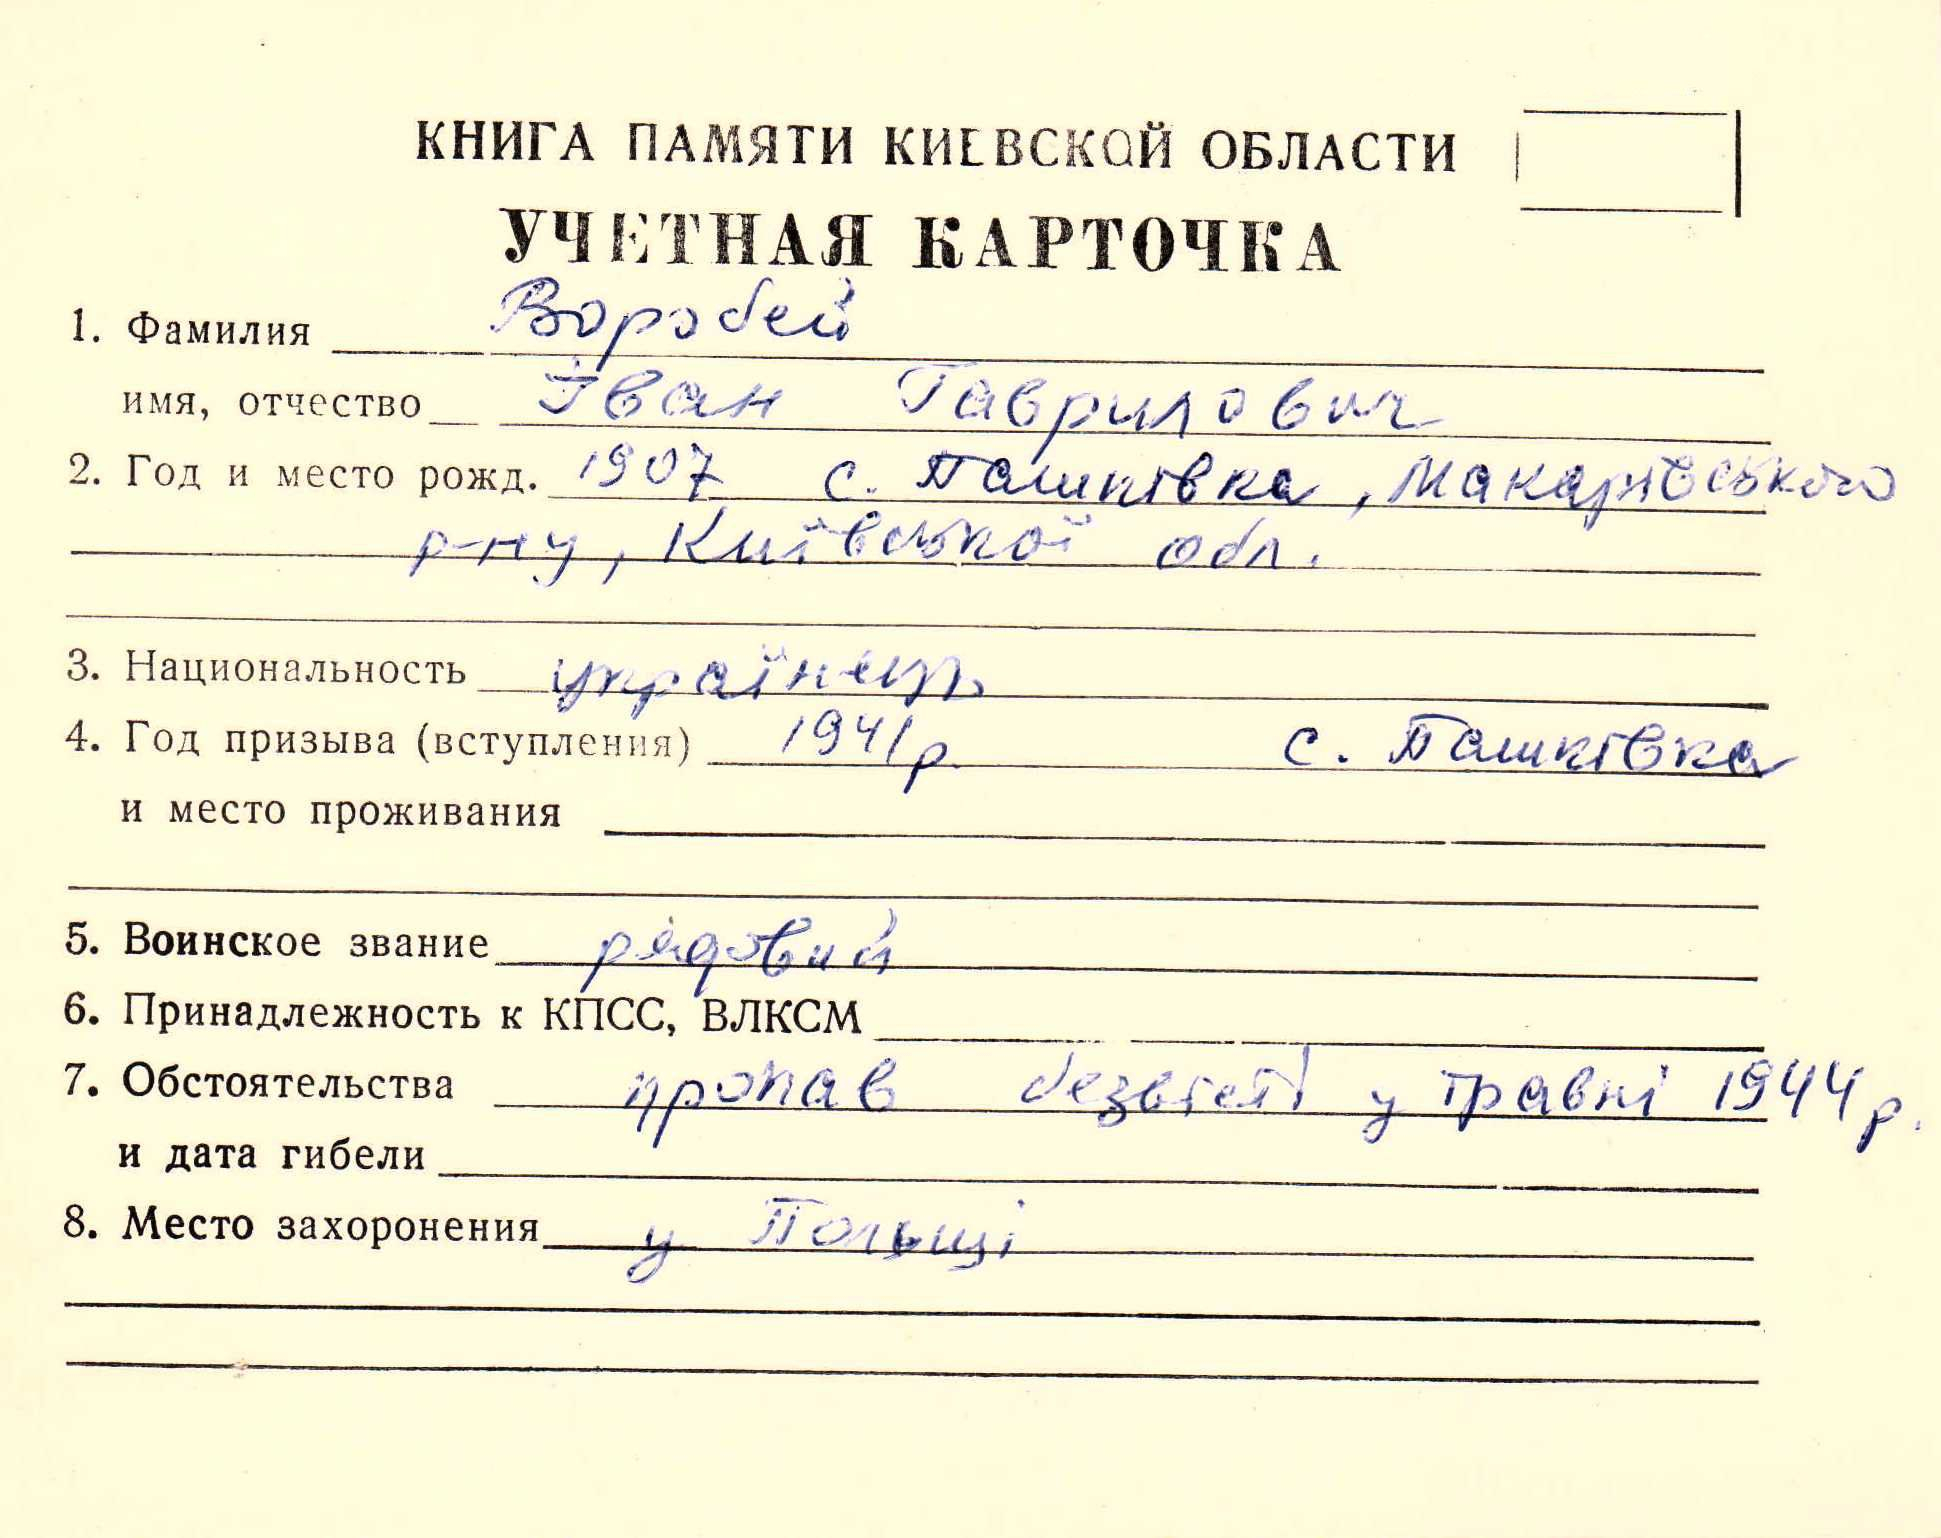 КНИГА ПАМЯТИ КИЕВСКОЙ ОБЛАСТИ
УЧЕТНАЯ КАРТОЧКА
1. Фамилия Воробей
имя, отчество Іван Гаврилович
2. Год и место рожд. 1907 с. Пашківка, Макарівського
р-ну, Київської обл.
3. Национальность українець
4. Год призыва (вступления) 1941 р. с. Пашківка
и место проживания
5. Воинское звание рядовий
6. Принадлежность к КПСС, ВЛКСМ
7. Обстоятельства пропав безвісті у травні 1944 р.
и дата гибели
8. Место захоронения у Польщі